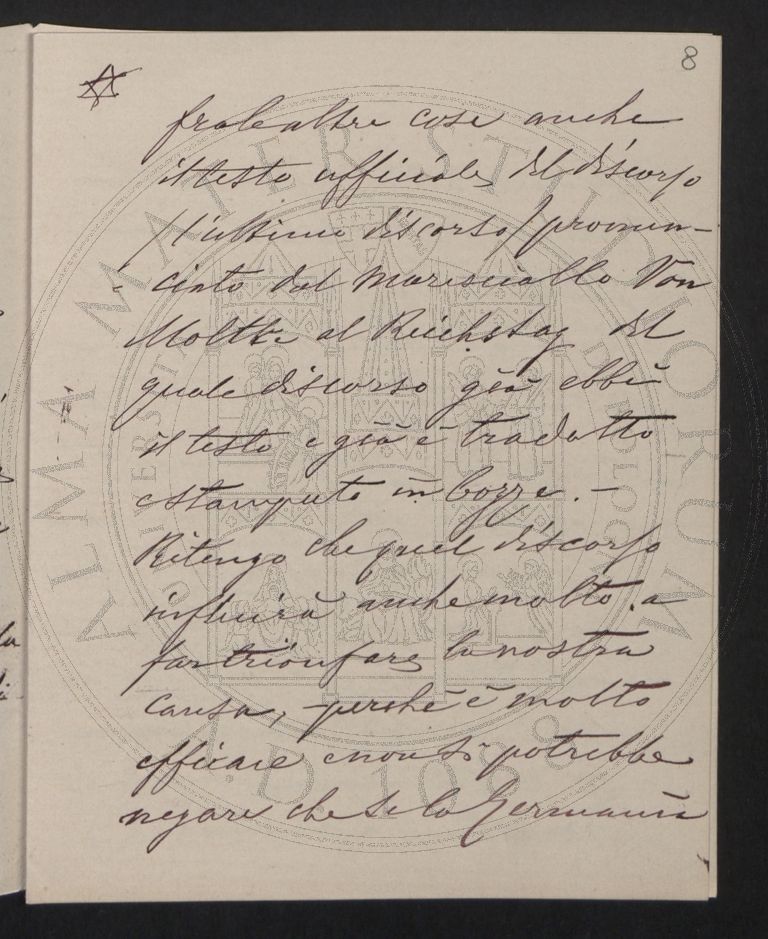 8
fra le altre cose anche
il testo ufficiale del discorso
(l'ultimo discorso) pronun-
- ciato dal Maresciallo Von
Moltke al Reichstag del
quale discorso già ebbi
il testo e già è tradotto
e stampato in bozze. -
Ritengo che quel discorso
influirà anche molto a
far trionfare la nostra
causa, perchè è molto
efficace e non si potrebbe
negare che se la Germania
ALMA MATER STUDIORUM
UNIVERSITÀ DI BOLOGNA
A.D. 1088